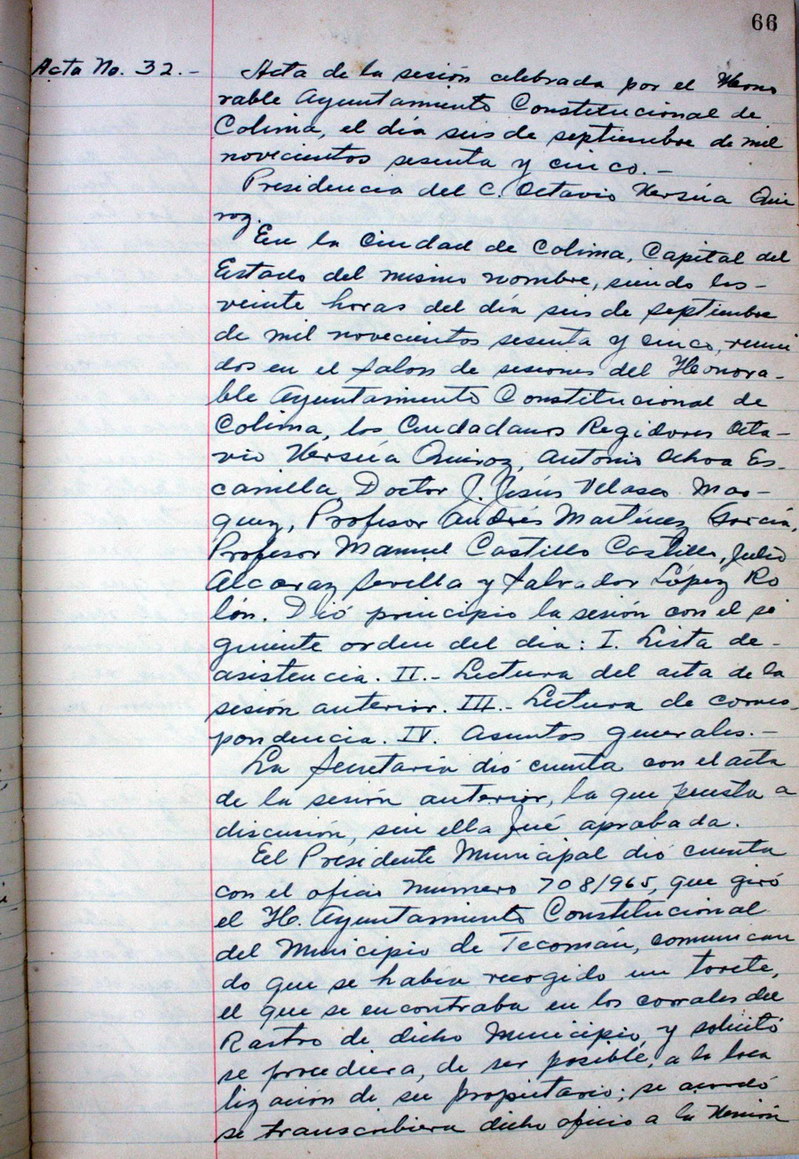 66
Acta No. 32.-
Acta de la sesión celebrada por el Hono
rable Ayuntamiento Constitucional de
Colima, el día seis de septiembre de mil
novecientos sesenta y cinco.-
Presidencia del C. Octavio Versúa Qui
roz.
En la Ciudad de Colima, Capital del
Estado del mismo nombre, siendo las-
veinte horas del día seis de septiembre
de mil novecientos sesenta y cinco, reuni
dos en el salón de sesiones del Honora-
ble Ayuntamiento Constitucional de
Colima, los Ciudadanos Regidores Octa-
vio Versúa Quiroz, Antonio Ochoa Es-
camilla, Doctor J. Jesús Velasco Mar-
quez, Profesor Andrés Martínez García,
Profesor Manuel Castillo Castillo, Julio
Alcaraz Sevilla y Salvador López Ro
lón. Dió principio la sesión con el si
guiente orden del dia: I. Lista de-
asistencia. II.- Lectura del acta de la
sesión anterior. III.- Lectura de corres-
pondencia. IV. Asuntos generales.-
La Secretaria dió cuenta con el acta
de la sesión anterior, la que puesta a
discusión, sin ella fué aprobada.
Eel Presidente Municipal dió cuenta
con el oficio número 708/965, que giró
el H. Ayuntamiento Constitucional
del Municipio de Tecomán, comunican
do que se había recogido un torete,
el que se encontraba en los corrales del
Rastro de dicho Municipio, y solicitó
se procediera, de ser posible, a la loca
lización de su propietario; se acordó
se transcribiera dicho oficio a la Unión